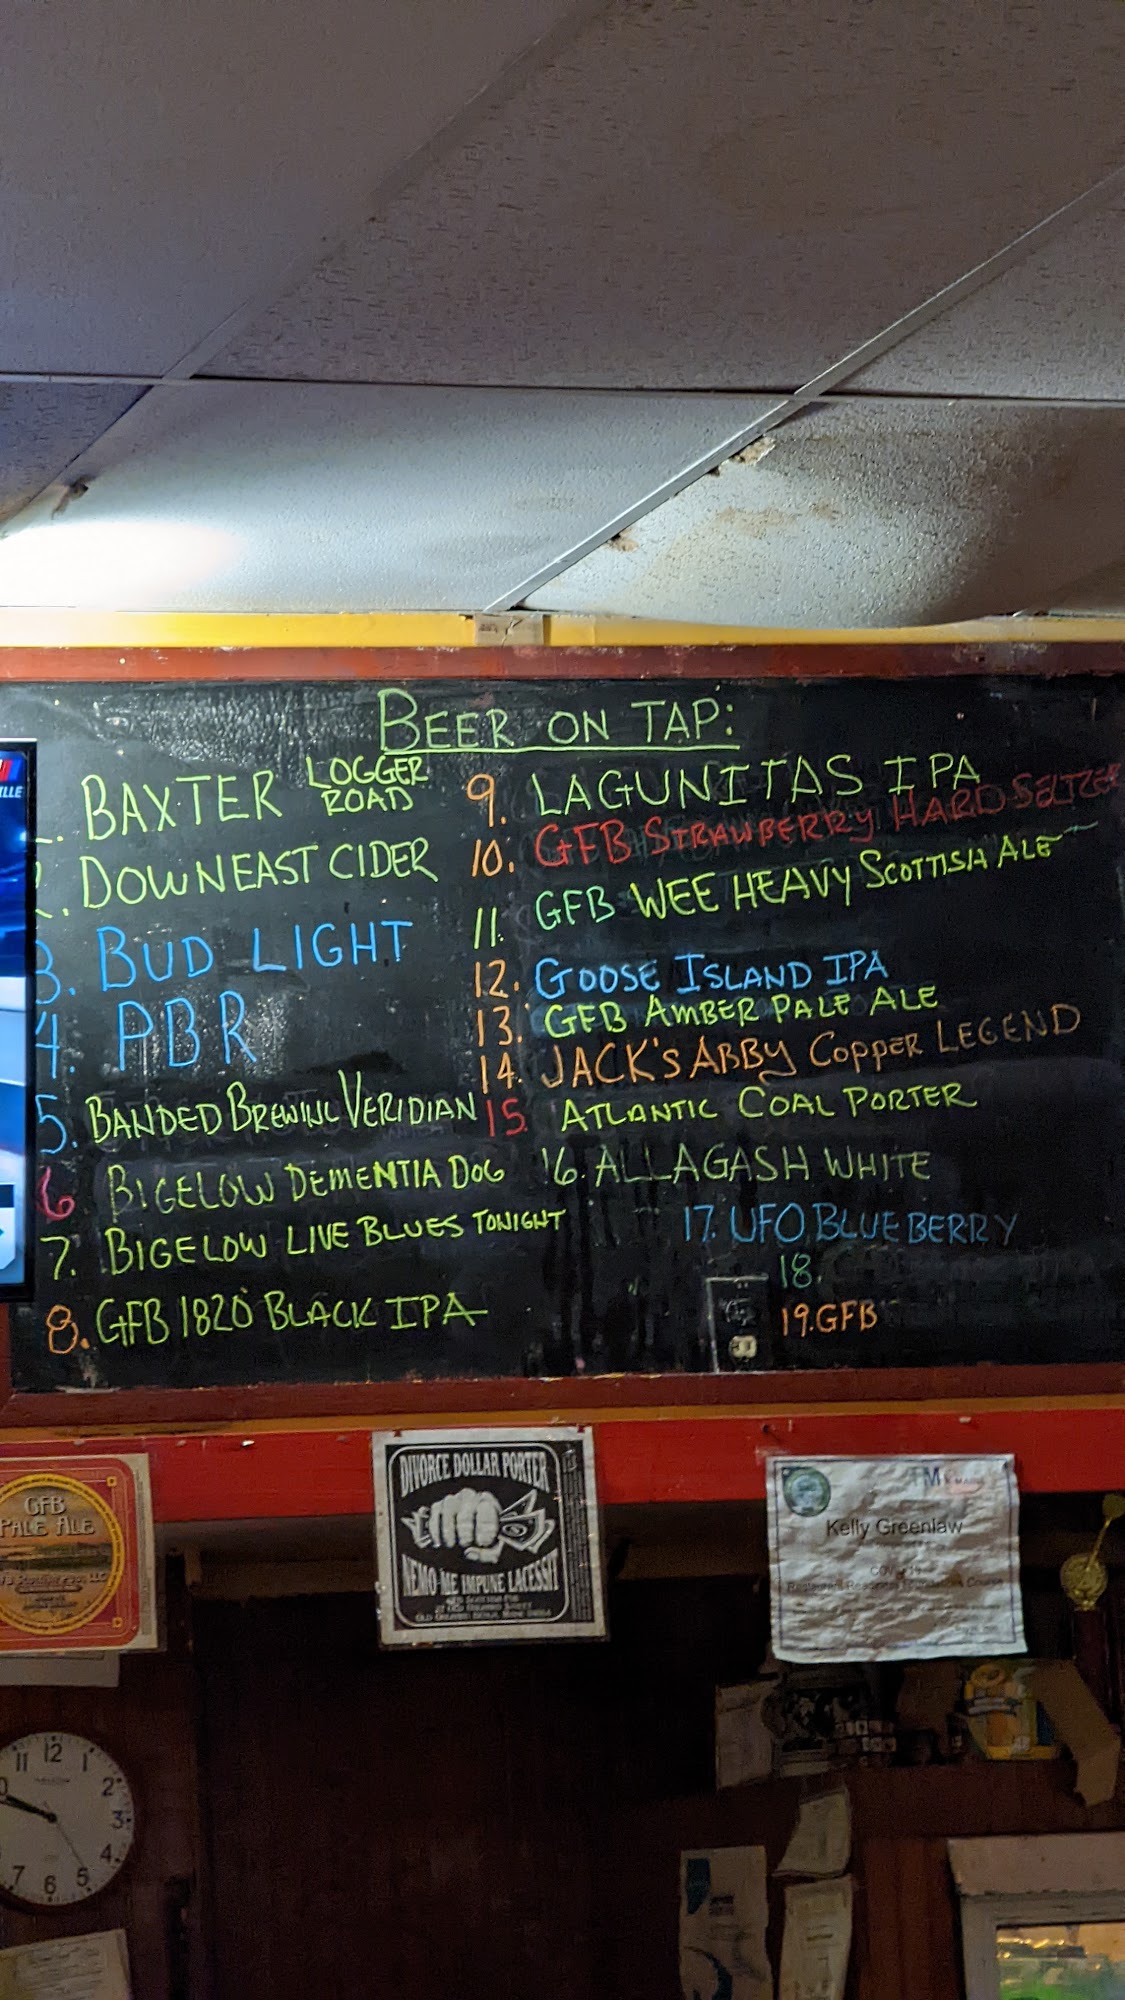 BEER ON TAP:
BAXTER LOGGER ROAD
DOWNEAST CIDER
3. BUD LIGHT
4. PBR
5. BANDED BREWING VERIDIAN
6 BIGELOW DEMENTIA DOG
7. BIGELOW LIVE BLUES TONIGHT
8. GFB 1820 BLACK IPA
9. LAGUNITAS IPA
10. GFB STRAWBERRY HARD SELTZER
11. GFB WEE HEAVY SCOTTISH ALE
12. GOOSE ISLAND IPA
13. GFB AMBER PALE ALE
14. JACK'S ABBY COPPER LEGEND
15. ATLANTIC COAL PORTER
16. ALLAGASH WHITE
17. UFO BLUEBERRY
18.
19. GFB
ILLE
GFB
PALE ALE
DIVORCE DOLLAR PORTER
NEMO ME IMPUNE LACESSIT
Kelly Greenlaw
11 12 1
2
3
4
5
6
7